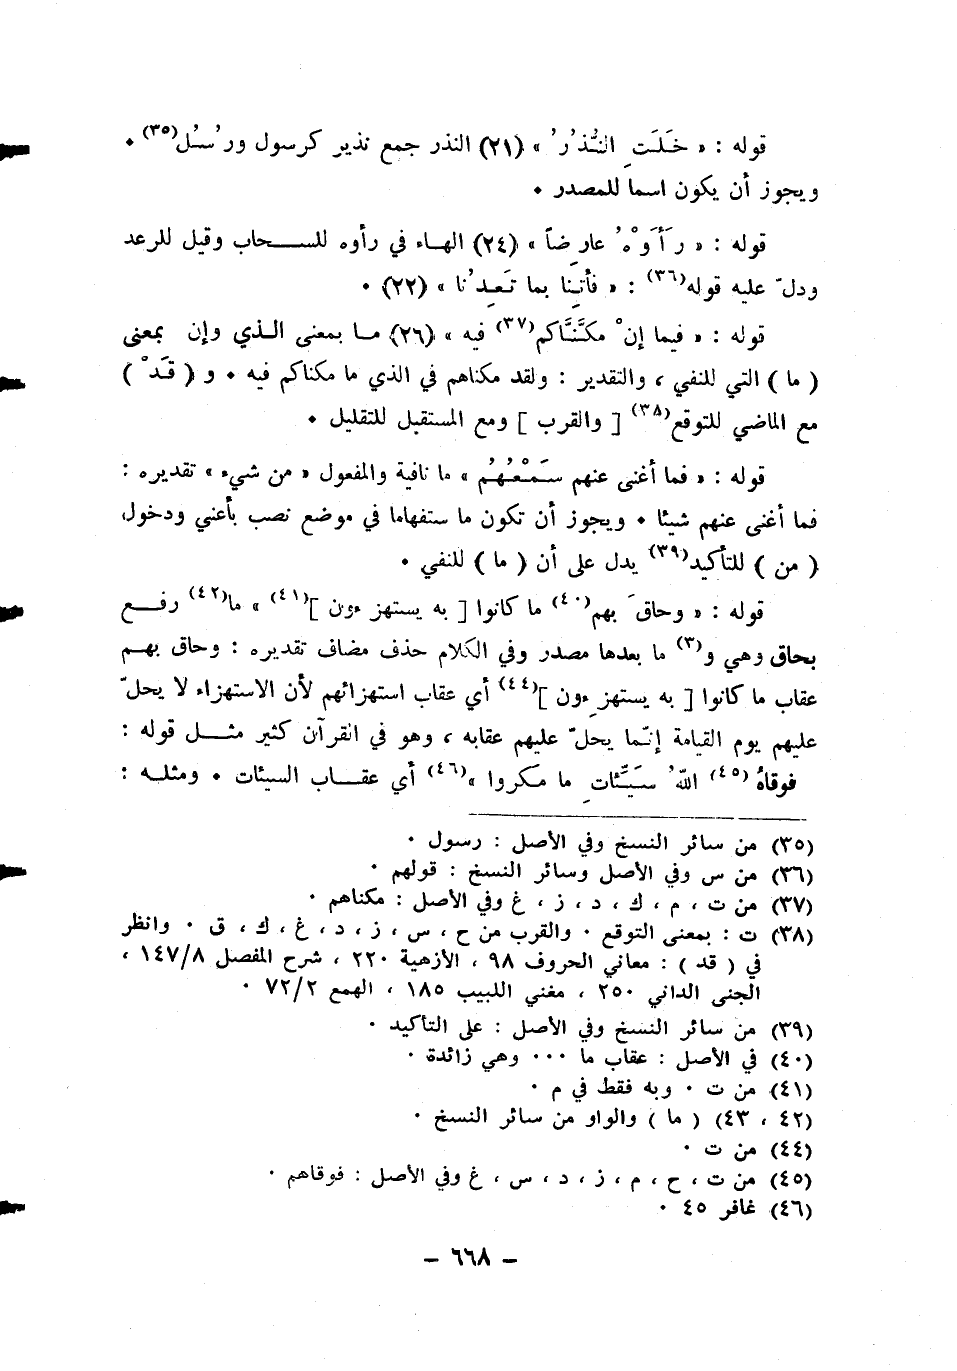 قوله : « خَلَتِ النُّذُرُ » (٢١) النذر جمع نذير كرسول ورُسُل(٣٥) ٠
ويجوز أن يكون اسما للمصدر ٠
قوله : « رَأَوْهُ عارِضاً » (٢٤) الهاء في رأوه للسحاب وقيل للرعد
ودلّ عليه قوله(٣٦) : « فأتِنا بما تَعِدُنا » (٢٢) ٠
قوله : « فيما إنْ مكَّنَّاكم(٣٧) فيه » (٢٦) ما بمعنى الذي وإن بمعنى
( ما ) التي للنفي ، والتقدير : ولقد مكناهم في الذي ما مكناكم فيه ٠ و ( قَدْ )
مع الماضي للتوقع(٣٨) [ والقرب ] ومع المستقبل للتقليل ٠
قوله : « فما أغنى عنهم سَمْعُهُم » ما نافية والمفعول « من شيء » تقديره :
فما أغنى عنهم شيئا ٠ ويجوز أن تكون ما ستفهاما في موضع نصب بأغني ودخول
( من ) للتأكيد(٣٩) يدل على أن ( ما ) للنفي ٠
قوله : « وحاقَ بهم(٤٠) ما كانوا [ به يستهزءون ](٤١) » ما(٤٢) رفع
بحاق وهي و(٣) ما بعدها مصدر وفي الكلام حذف مضاف تقديره : وحاق بهم
عقاب ما كانوا [ به يستهزِءون ](٤٤) أي عقاب استهزائهم لأن الاستهزاء لا يحلّ
عليهم يوم القيامة إنّما يحلّ عليهم عقابه ، وهو في القرآن كثير مثل قوله :
فوقاهُ (٤٥) اللّهُ سَيِّئاتِ ما مَكروا »(٤٦) أي عقاب السيئات ٠ ومثله :
(٣٥) من سائر النسخ وفي الأصل : رسول ٠
(٣٦) من س وفي الأصل وسائر النسخ : قولهم ٠
(٣٧) من ت ، م ، ك ، د ، ز ، غ وفي الأصل : مكناهم ٠
(٣٨) ت : بمعنى التوقع ٠ والقرب من ح ، س ، ز ، د ، غ ، ك ، ق ٠ وانظر
في ( قد ) : معاني الحروف ٩٨ ، الأزهية ٢٢٠ ، شرح المفصل ١٤٧/٨ ،
الجنى الداني ٢٥٠ ، مغني اللبيب ١٨٥ ، الهمع ٧٢/٢ ٠
(٣٩) من سائر النسخ وفي الأصل : على التأكيد ٠
(٤٠) في الأصل : عقاب ما ٠٠٠ وهي زائدة ٠
(٤١) من ت ٠ وبه فقط في م ٠
(٤٢ ، ٤٣) ( ما ) والواو من سائر النسخ ٠
(٤٤) من ت ٠
(٤٥) من ت ، ح ، م ، ز ، د ، س ، غ وفي الأصل : فوقاهم ٠
(٤٦) غافر ٤٥ ٠
– ٦٦٨ –